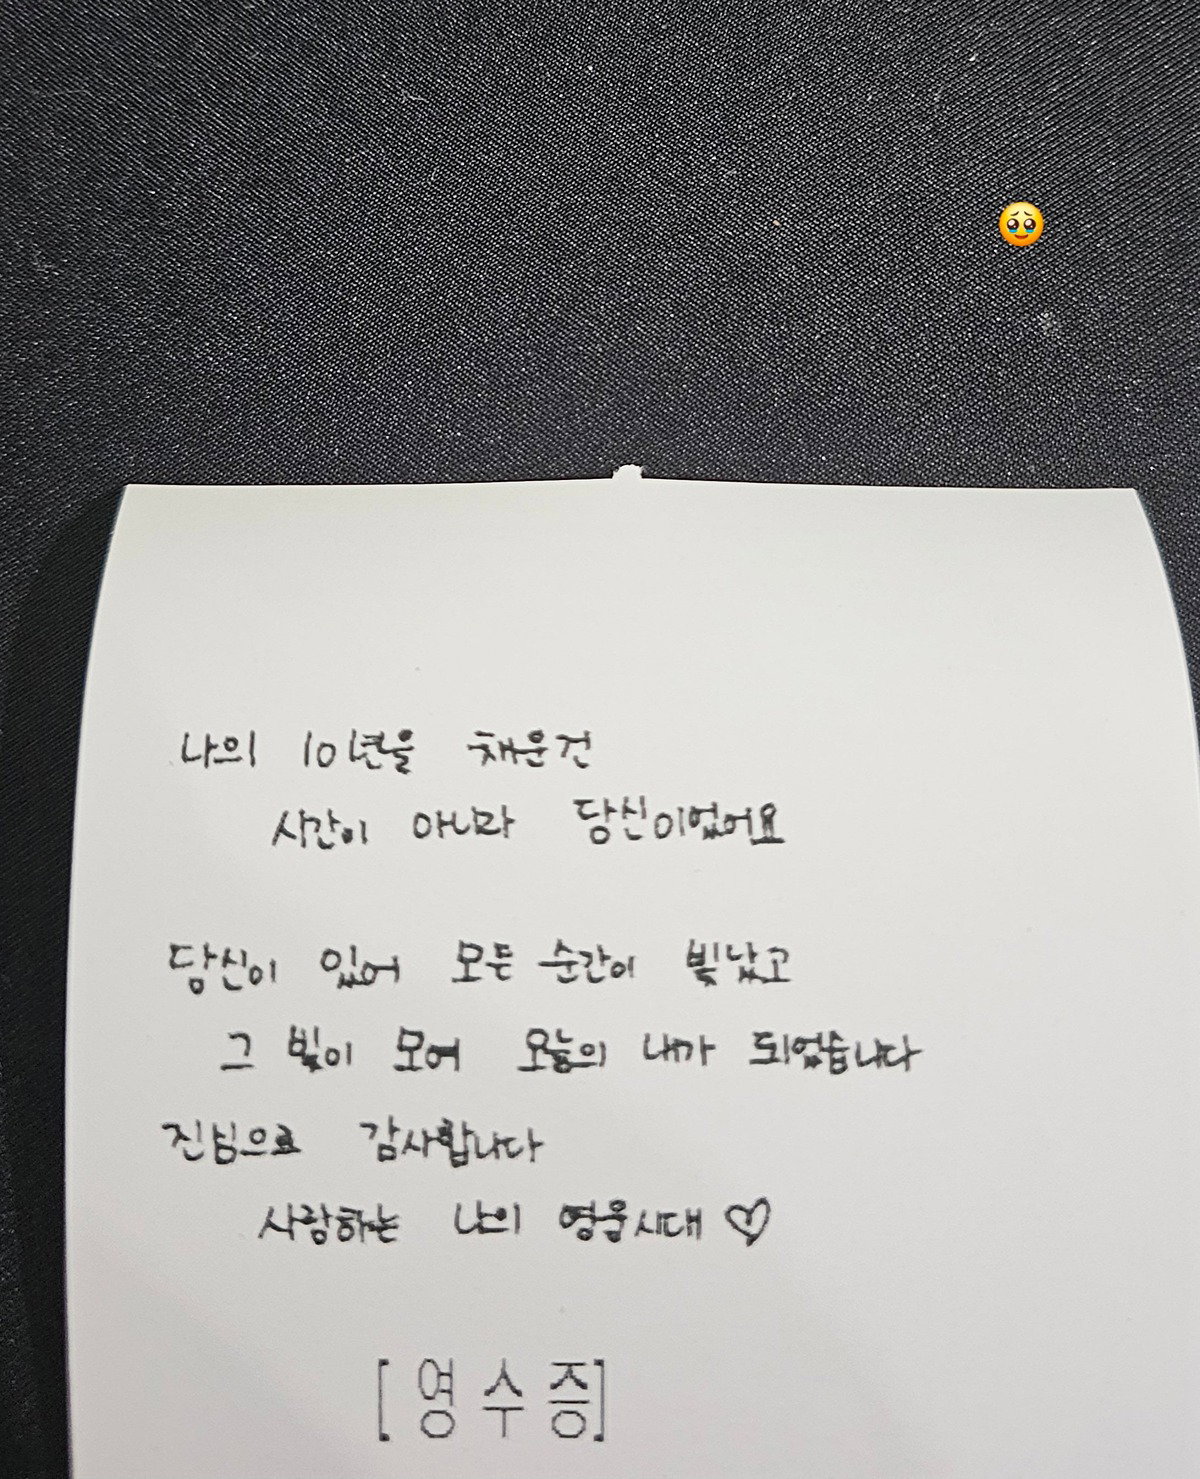 나의 10년을 채운건
시간이 아니라 당신이었어요
당신이 있어 모든 순간이 빛났고
그 빛이 모여 오늘의 내가 되었습니다
진심으로 감사합니다
사랑하는 나의 영웅시대♡
[영수증]